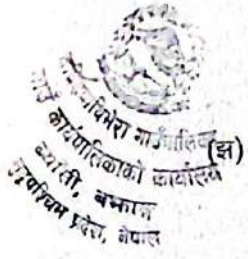 गाउँ कार्यपालिकाको कार्यालय
(झ)
ब्याँसी, बझाङ
सुदूरपश्चिम प्रदेश, नेपाल